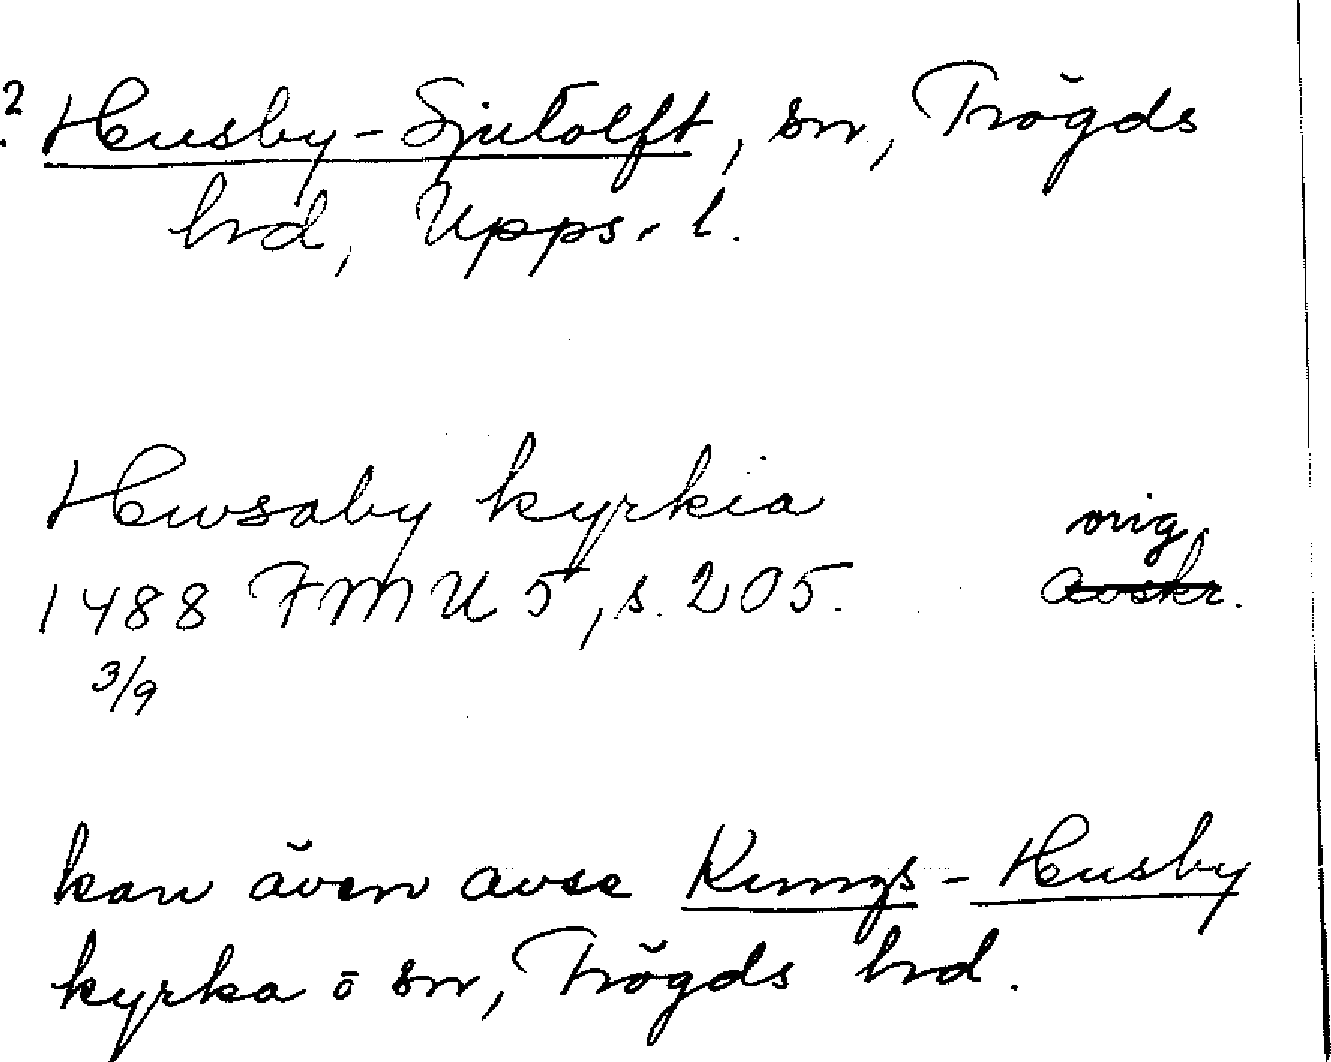 ? Husby-Sjutolft, sn, Trögds
hrd, Upps. l.
Hwsaby kyrkia
orig
1488 FMU 5, s. 205. avskr.
3/9
kan även avse Kungs-Husby
kyrka o sn, Trögds hrd.